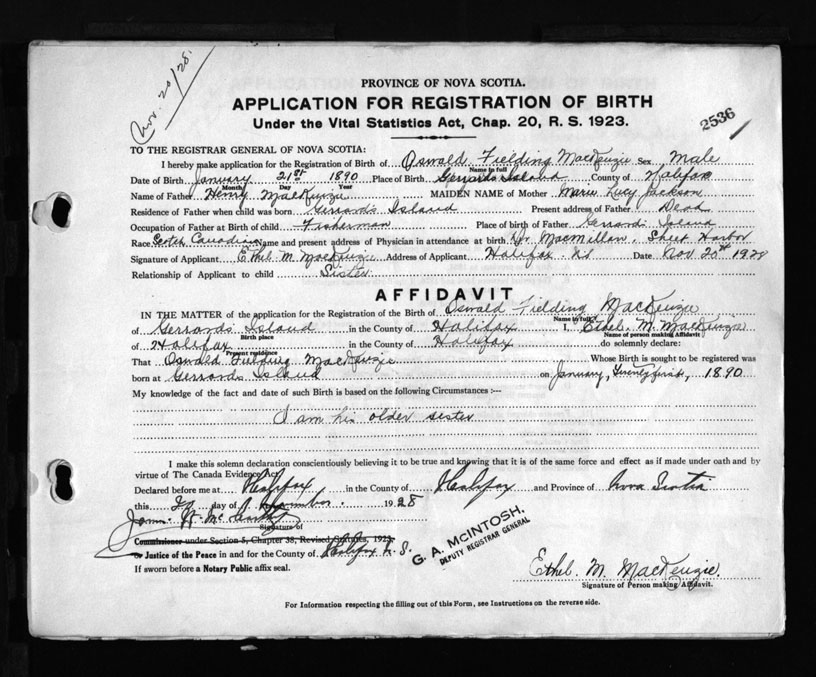 Nov. 20/28.
PROVINCE OF NOVA SCOTIA.
APPLICATION FOR REGISTRATION OF BIRTH
Under the Vital Statistics Act, Chap. 20, R. S. 1923.
2536
TO THE REGISTRAR GENERAL OF NOVA SCOTIA:
I hereby make application for the Registration of Birth of Oswald Fielding MacKenzie Sex Male
Name in full
Date of Birth January 21st 1890 Place of Birth Gerrards Island County of Halifax
Month Day Year
Name of Father Henry MacKenzie MAIDEN NAME of Mother Maria Lucy Jackson
Residence of Father when child was born Gerrard's Island Present address of Father Dead
Occupation of Father at Birth of child Fisherman Place of birth of Father Gerrards Island
Race Scotch Canadian Name and present address of Physician in attendance at birth Dr MacMillan, Sheet Harbor
Signature of Applicant Ethel M. MacKenzie Address of Applicant Halifax NS Date Nov 20th 1928
Relationship of Applicant to child Sister
AFFIDAVIT
IN THE MATTER of the application for the Registration of the Birth of Oswald Fielding MacKenzie
Name in full
of Gerrards Island in the County of Halifax I, Ethel. M. MacKenzie
Birth place Name of person making Affidavit
of Halifax in the County of Halifax do solemnly declare:
Present residence
That Oswald Fielding MacKenzie Whose Birth is sought to be registered was
born at Gerrards Island on January, Twenty first, 1890
My knowledge of the fact and date of such Birth is based on the following Circumstances :—
I am his older sister
I make this solemn declaration conscientiously believing it to be true and knowing that it is of the same force and effect as if made under oath and by
virtue of The Canada Evidence Act.
Declared before me at Halifax in the County of Halifax and Province of Nova Scotia
this 20 day of November 1928
Signature of
Commissioner under Section 5, Chapter 38, Revised Statutes, 1923.
or Justice of the Peace in and for the County of Halifax N.S.
If sworn before a Notary Public affix seal.
G. A. McINTOSH,
DEPUTY REGISTRAR GENERAL
Ethel. M. MacKenzie.
Signature of Person making Affidavit.
For Information respecting the filling out of this Form, see Instructions on the reverse side.